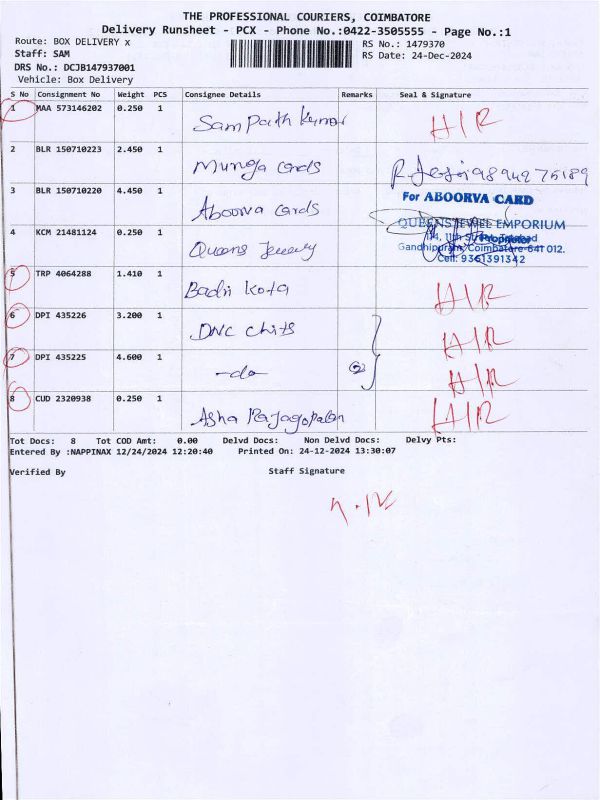 THE PROFESSIONAL COURIERS, COIMBATORE
Delivery Runsheet - PCX - Phone No.:0422-3505555 - Page No.:1
Route: BOX DELIVERY x
RS No.: 1479370
Staff: SAM
RS Date: 24-Dec-2024
DRS No.: DCJB147937001
Vehicle: Box Delivery
S No Consignment No Weight PCS Consignee Details Remarks Seal & Signature
1 MAA 573146202 0.250 1 Sampath Kumar H/R
2 BLR 150710223 2.450 1 Munga cards
3 BLR 150710220 4.450 1 Aboorva cards For ABOORVA CARD
4 KCM 21481124 0.250 1 Queens Jewelry
QUEENS JEWEL EMPORIUM
Proprietor
Gandhipuram, Coimbatore-641 012.
Cell: 9361391342
5 TRP 4064288 1.410 1 Badri Kota H/R
6 DPI 435226 3.200 1 DNC chits H/R
7 DPI 435225 4.600 1 -do- 2 H/R
8 CUD 2320938 0.250 1 Asha Rajagopalan H/R
Tot Docs: 8 Tot COD Amt: 0.00 Delvd Docs: Non Delvd Docs: Delvy Pts:
Entered By :NAPPINAX 12/24/2024 12:20:40 Printed On: 24-12-2024 13:30:07
Verified By Staff Signature